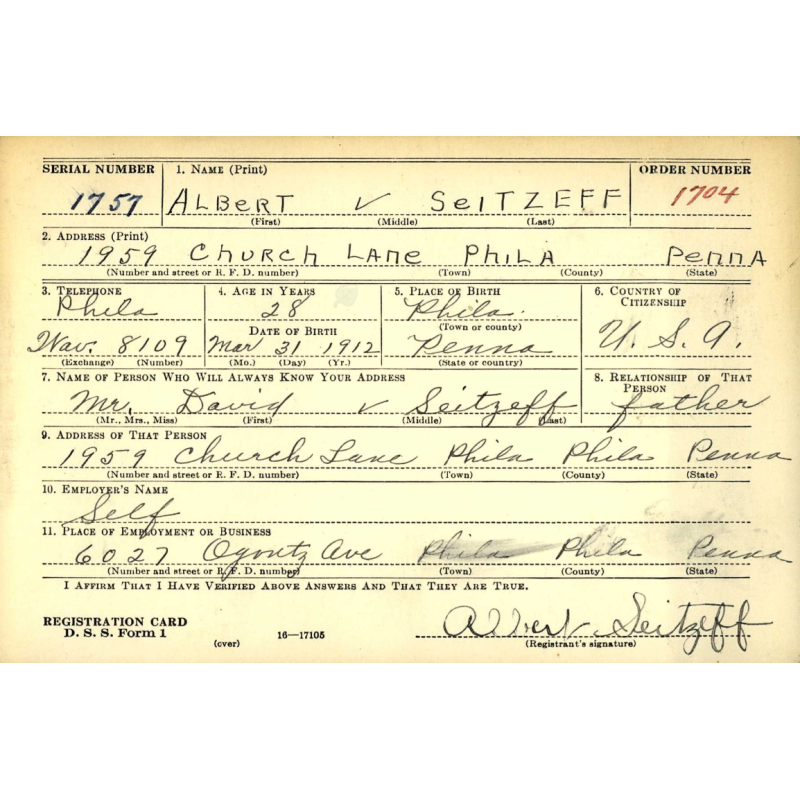 SERIAL NUMBER 1. NAME (Print) ORDER NUMBER
1757 ALBERT V SEITZEFF 1704
(First) (Middle) (Last)
2. ADDRESS (Print)
1959 CHURCH LANE PHILA PENNA
(Number and street or R. F. D. number) (Town) (County) (State)
3. TELEPHONE 4. AGE IN YEARS 5. PLACE OF BIRTH 6. COUNTRY OF CITIZENSHIP
Phila 28 Phila.
DATE OF BIRTH (Town or county)
Wav. 8109 Mar 31 1912 Penna U. S. A.
(Exchange) (Number) (Mo.) (Day) (Yr.) (State or country)
7. NAME OF PERSON WHO WILL ALWAYS KNOW YOUR ADDRESS 8. RELATIONSHIP OF THAT PERSON
Mr. David V Seitzeff father
(Mr., Mrs., Miss) (First) (Middle) (Last)
9. ADDRESS OF THAT PERSON
1959 Church Lane Phila Phila Penna
(Number and street or R. F. D. number) (Town) (County) (State)
10. EMPLOYER'S NAME
Self
11. PLACE OF EMPLOYMENT OR BUSINESS
6027 Ogontz Ave Phila Phila Penna
(Number and street or R. F. D. number) (Town) (County) (State)
I AFFIRM THAT I HAVE VERIFIED ABOVE ANSWERS AND THAT THEY ARE TRUE.
REGISTRATION CARD
D. S. S. Form 1 (over) 16—17105 Albert Seitzeff
(Registrant's signature)